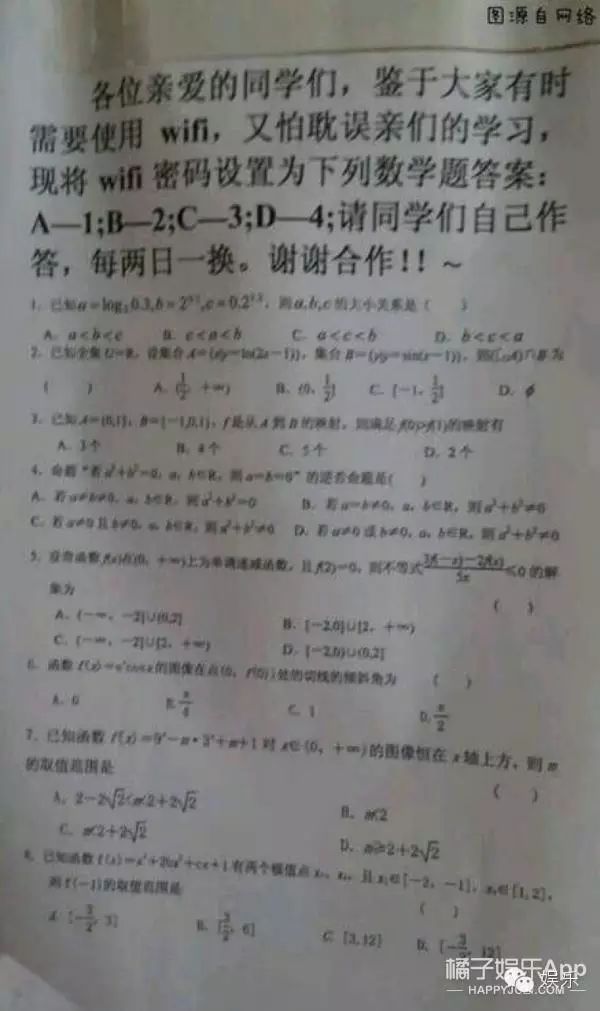 图源自网络
各位亲爱的同学们，鉴于大家有时
需要使用 wifi，又怕耽误亲们的学习，
现将 wifi 密码设置为下列数学题答案：
A—1;B—2;C—3;D—4;请同学们自己作
答，每两日一换。谢谢合作!! ~
1. 已知a=log₂0.3,b=2 ,c=0.2 ，则a,b,c的大小关系是（ ）
A. a<b<c B. c<a<b C. a<c<b D. b<c<a
2. 已知全集U=R，设集合A={x|y=ln(2x-1)}，集合B={y|y=sin(x-1)}，则(∁ᵤA)∩B为
（ ） A. (1/2, +∞) B. (0, 1/2] C. [-1, 1/2] D. ϕ
3. 已知A={0,1}，B={-1,0,1}，f是从A到B的映射，则满足f(0)>f(1)的映射有
A. 3个 B. 4个 C. 5个 D. 2个
4. 命题“若a²+b²=0，a，b∈R，则a=b=0”的逆否命题是( )
A. 若a≠b≠0，a，b∈R，则a²+b²=0 B. 若a=b≠0，a，b∈R，则a²+b²≠0
C. 若a≠0且b≠0，a，b∈R，则a²+b²≠0 D. 若a≠0或b≠0，a，b∈R，则a²+b²≠0
5. 设奇函数f(x)在(0，+∞)上为单调递减函数，且f(2)=0，则不等式 (3f(-x)-2f(x))/5x ≤0 的解
集为 （ ）
A. (-∞，-2]∪(0,2] B. [-2,0]∪[2，+∞)
C. (-∞，-2]∪[2，+∞) D. [-2,0)∪(0,2]
6. 函数 f(x)=eˣcosx的图像在点(0，f(0))处的切线的倾斜角为 （ ）
A. 0 B. π/4 C. 1 D. π/2
7. 已知函数 f(x)=9ˣ-m·3ˣ+m+1 对 x∈(0，+∞)的图像恒在 x 轴上方，则 m
的取值范围是 （ ）
A. 2-2√2<m<2+2√2 B. m<2
C. m<2+2√2 D. m≥2+2√2
8. 已知函数 f(x)=x³+2bx²+cx+1有两个极值点 x₁，x₂，且x₁∈[-2，-1]，x₂∈[1,2]，
则f(-1)的取值范围是 （ ）
A. [-3/2, 3] B. [3/2, 6] C. [3,12] D. [-3/2, 12]
橘子娱乐App
娱乐
HAPPYJUZI.COM